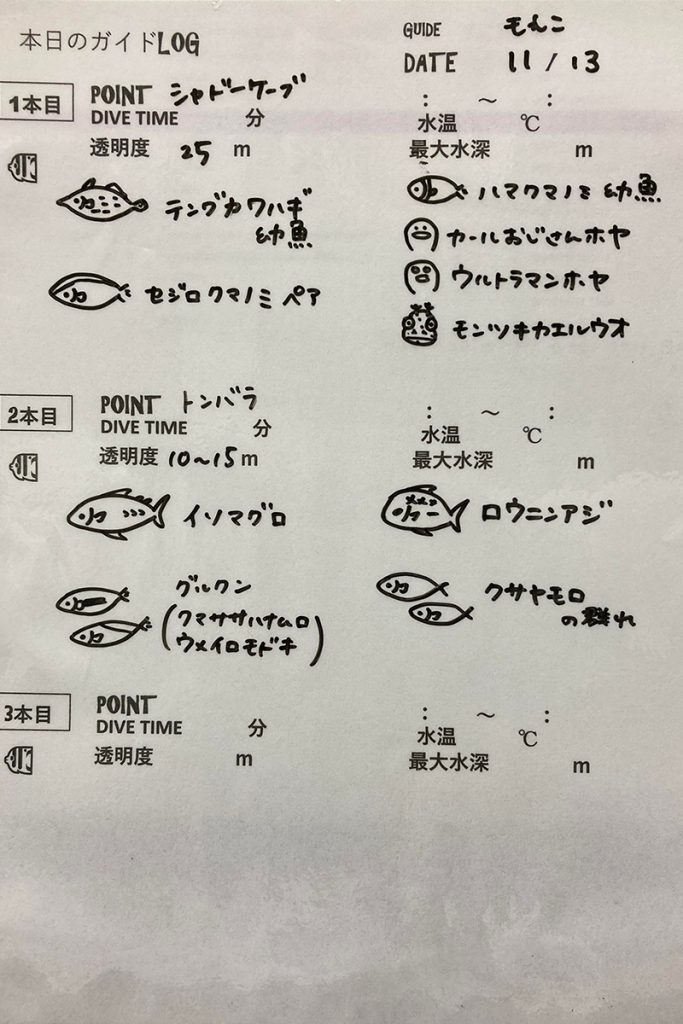 本日のガイドLOG
GUIDE もえこ
DATE 11 / 13
1本目
POINT シャドーケーブ
DIVE TIME 分
: ～ :
水温 ℃
透明度 25 m
最大水深 m
テングカワハギ
幼魚
セジロクマノミ ペア
ハマクマノミ 幼魚
カールおじさんホヤ
ウルトラマンホヤ
モンツキカエルウオ
2本目
POINT トンバラ
DIVE TIME 分
: ～ :
水温 ℃
透明度 10～15 m
最大水深 m
イソマグロ
ロウニンアジ
グルクン
(クマササハナムロ
ウメイロモドキ)
クサヤモロ
の群れ
3本目
POINT
DIVE TIME 分
: ～ :
水温 ℃
透明度 m
最大水深 m